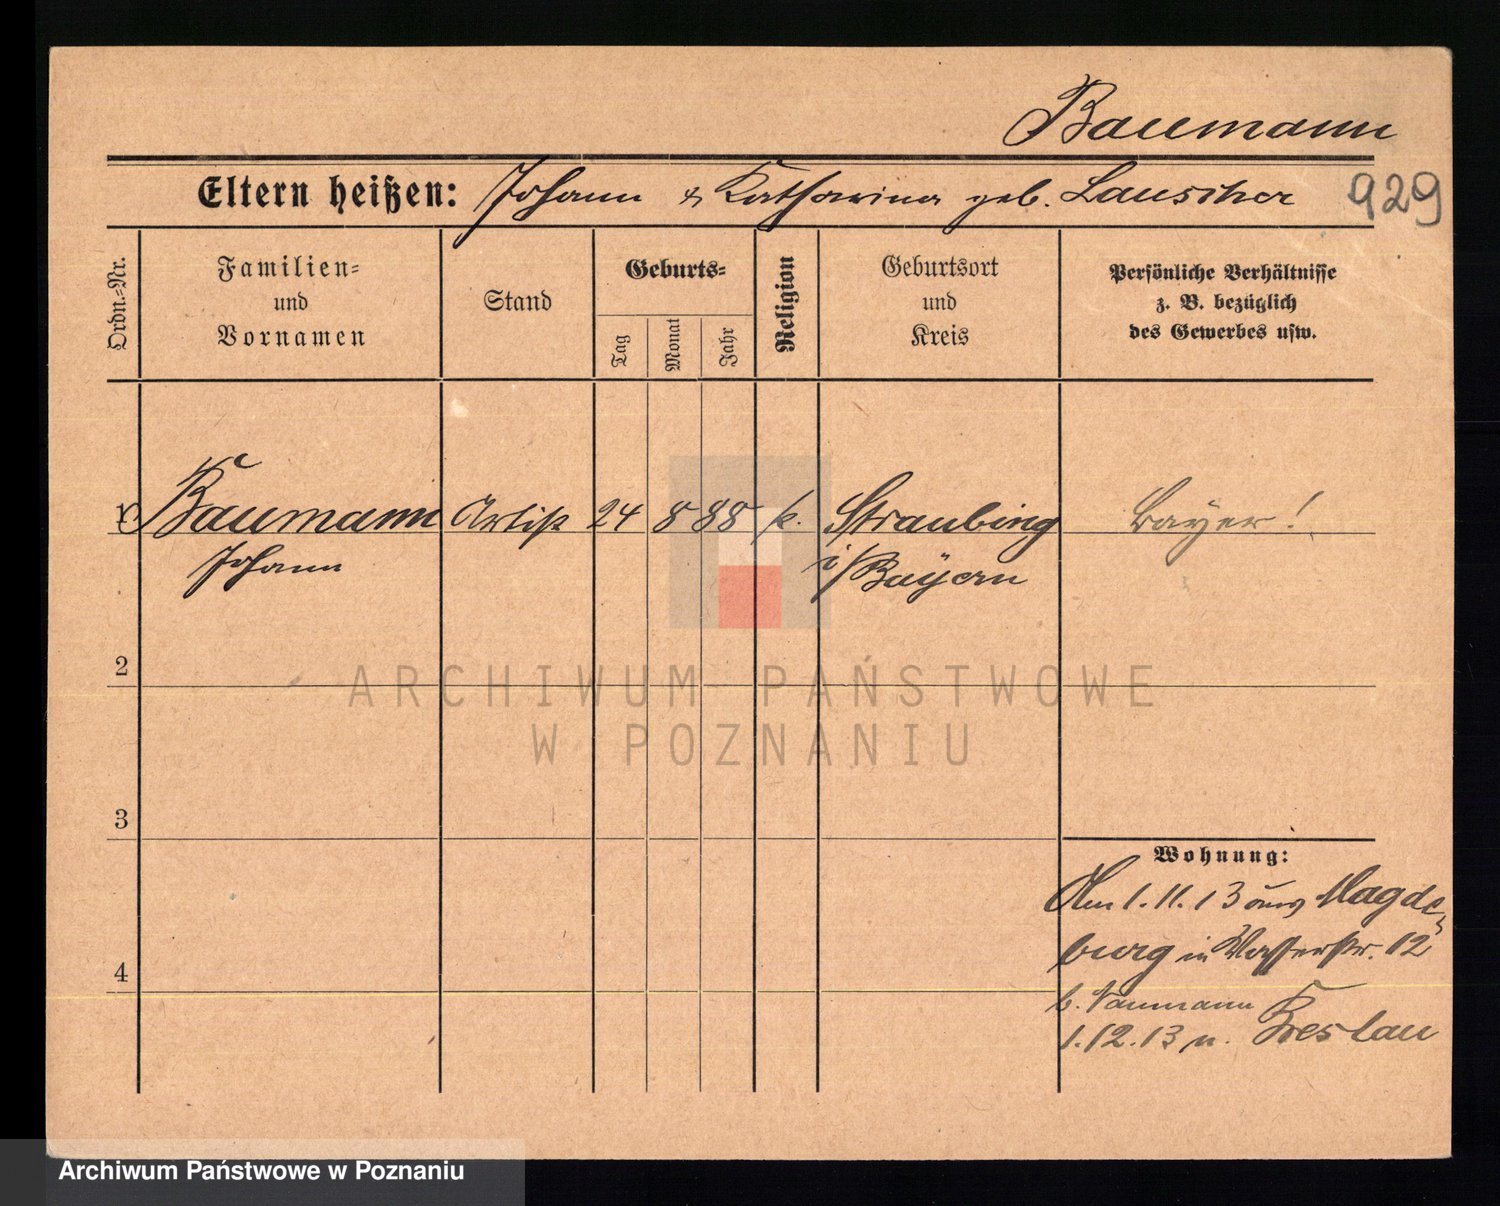 Baumann
Eltern heißen: Johann & Katharina geb. Lauscher
929
Ordn.-Nr.
Familien-
und
Vornamen
Stand
Geburts-
Tag
Monat
Jahr
Religion
Geburtsort
und
Kreis
Persönliche Verhältnisse
z. B. bezüglich
des Gewerbes usw.
1 Baumann Artist 24 8 88 k. Straubing Bayer!
Johann i/Bayern
2
3
4
ARCHIWUM PAŃSTWOWE
W POZNANIU
Wohnung:
Am 1.11.13 aus Magde-
burg in Wasserstr. 12
b. Naumann
1.12.13 n. Breslau
Archiwum Państwowe w Poznaniu